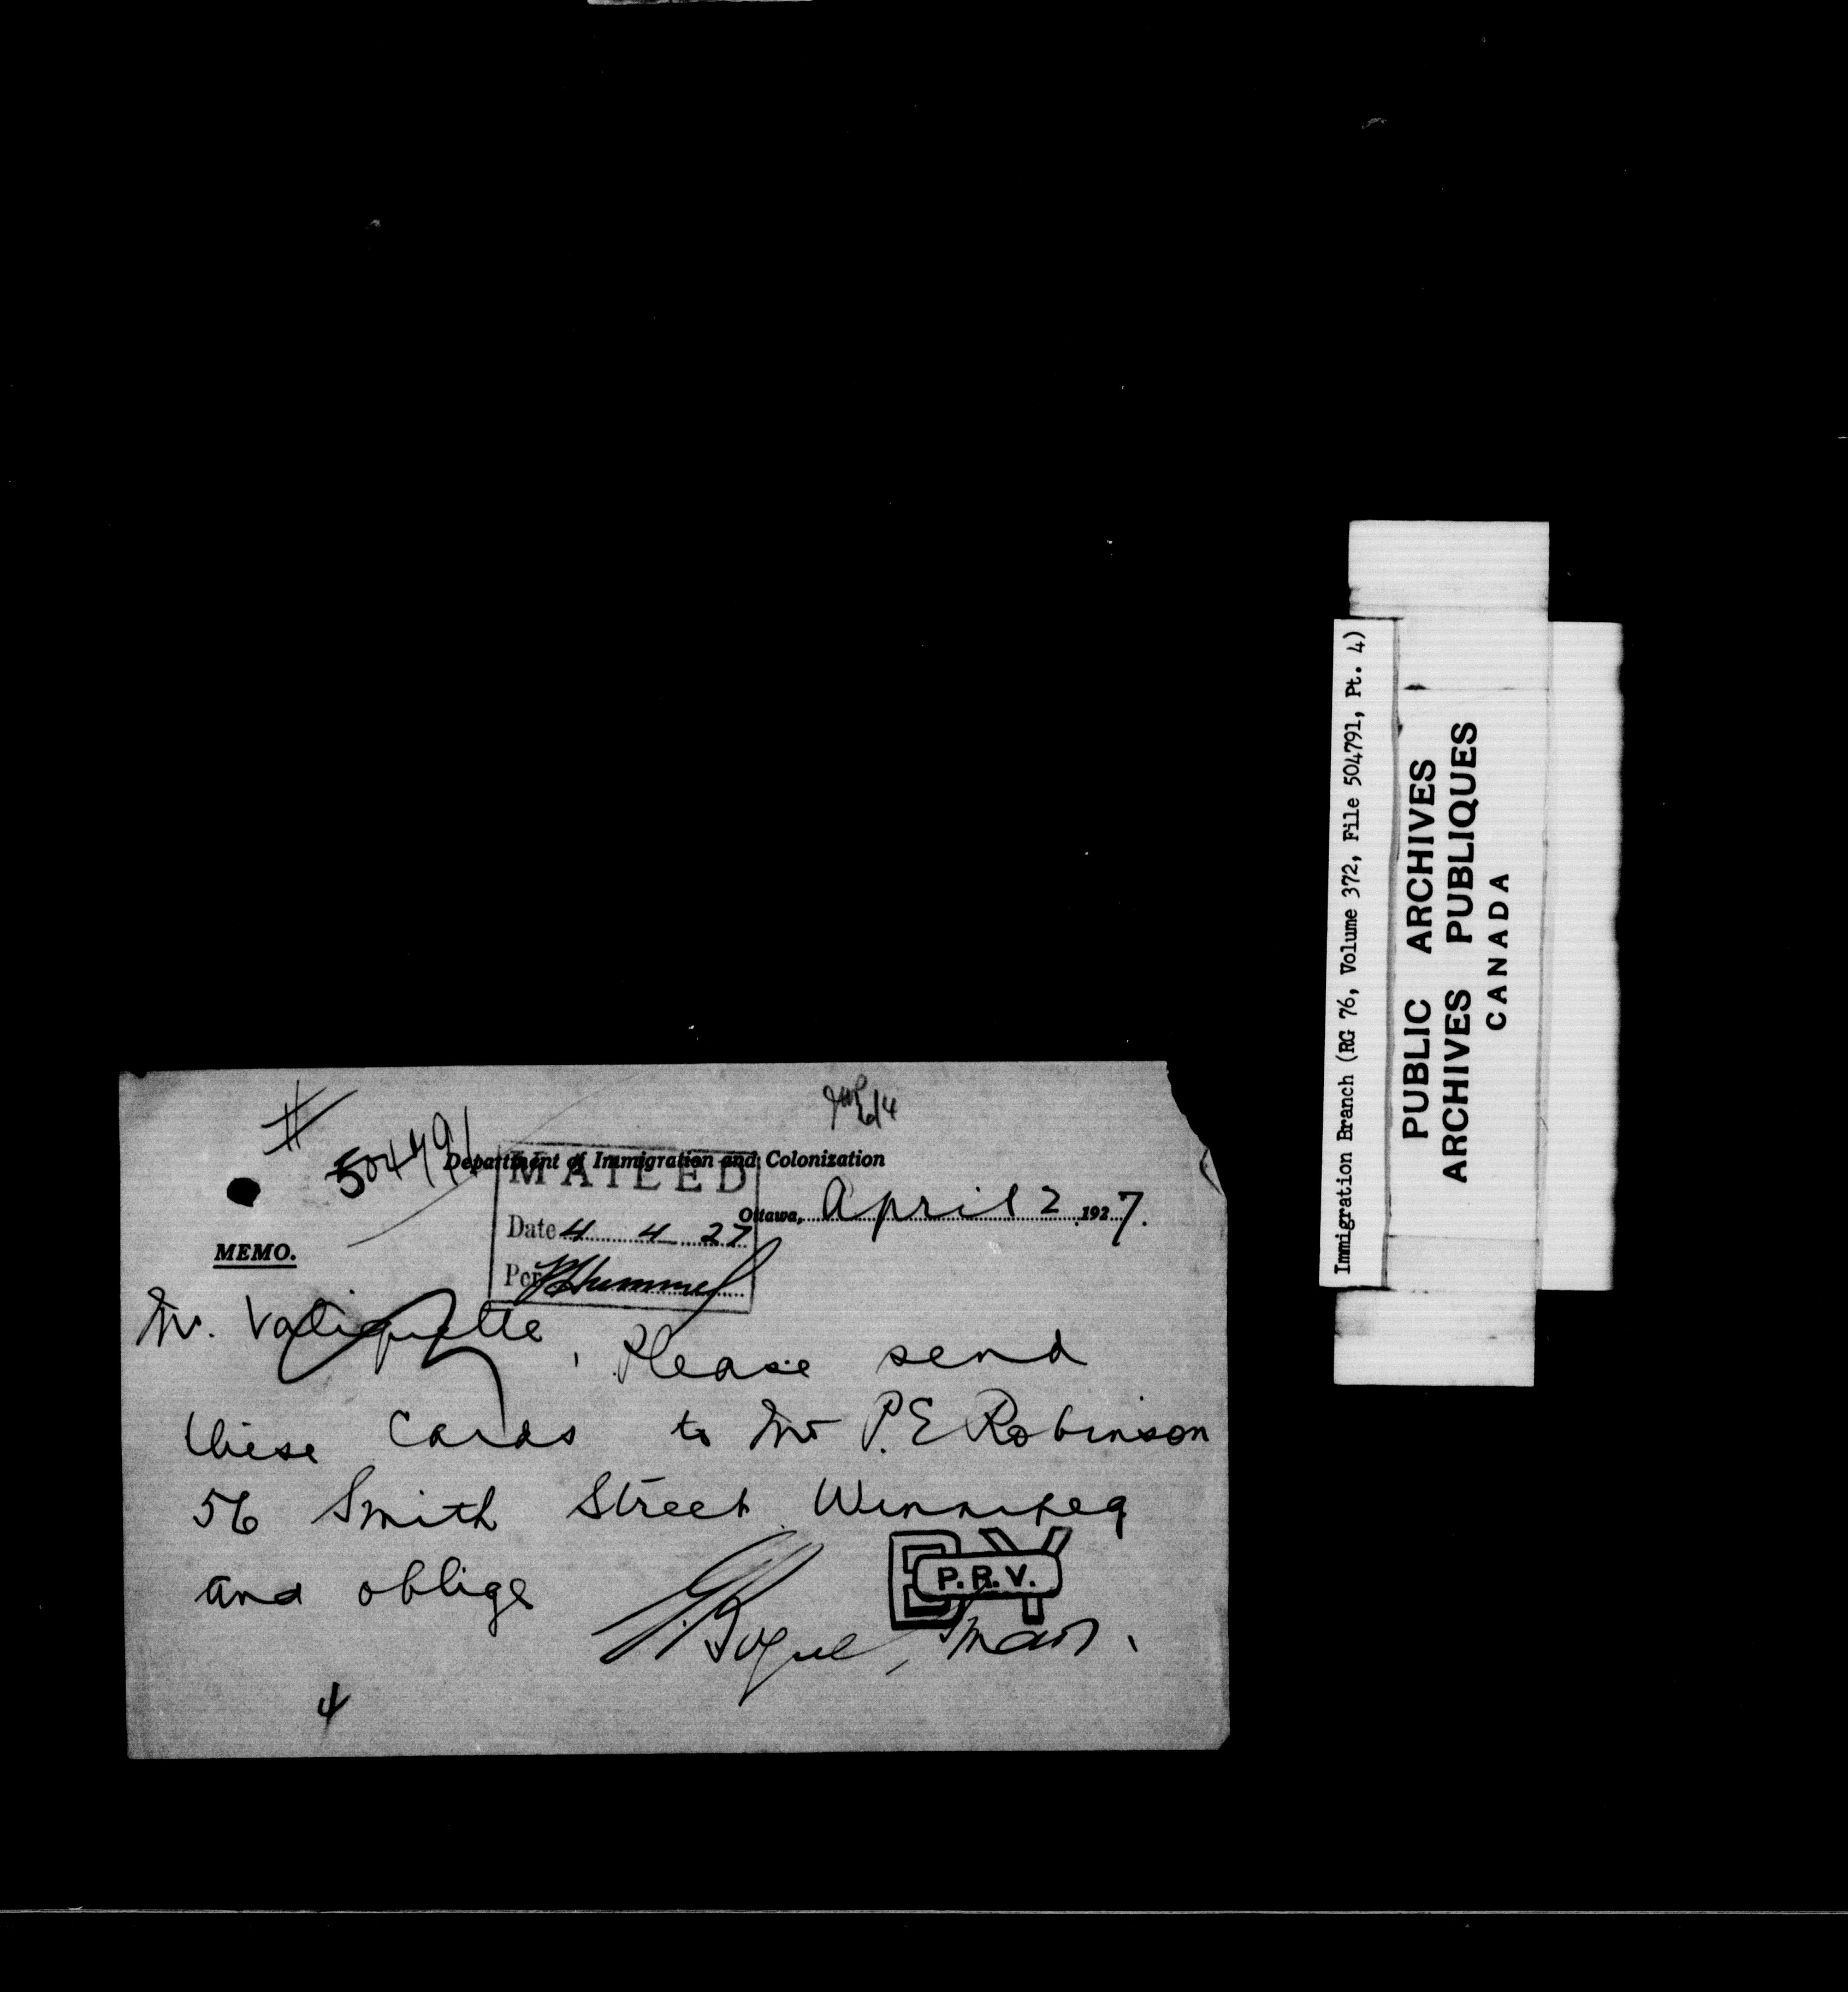 # 504791
Department of Immigration and Colonization
MAILED
Ottawa, April 2 1927.
Date 4 4 27
Per Hummel
MEMO.
Mr. Valiquette,
Please send
these cards to Mr P.E Robinson
56 Smith Street Winnipeg
and oblige
P.R.V.
4
Immigration Branch (RG 76, Volume 372, File 504791, Pt. 4)
PUBLIC ARCHIVES
ARCHIVES PUBLIQUES
CANADA